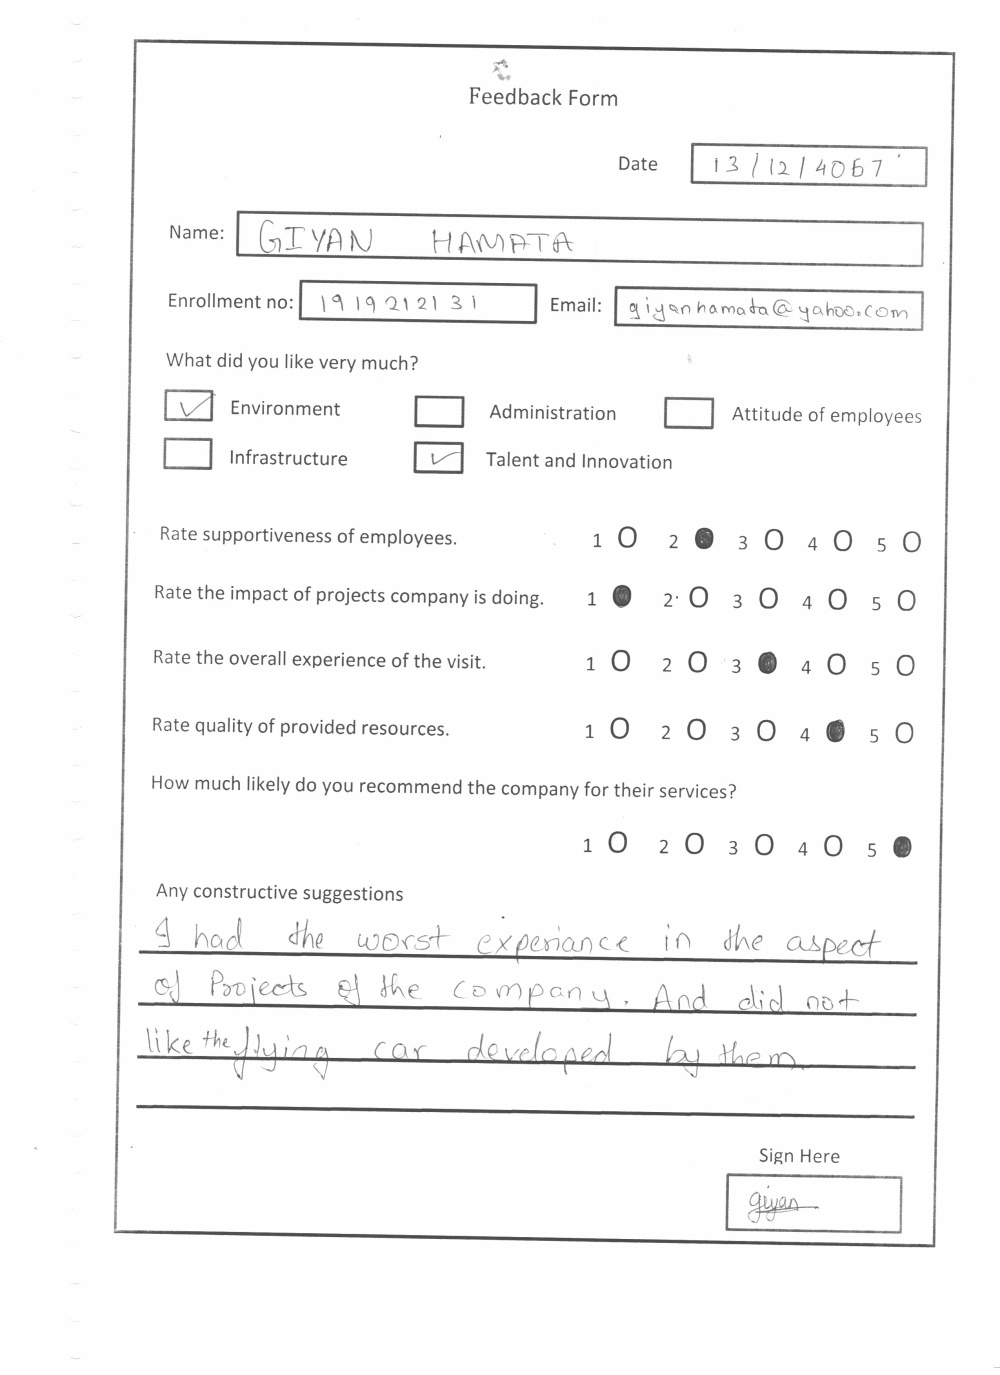 Feedback Form
Date 13/12/4067
Name: GIYAN HAMATA
Enrollment no: 1919212131 Email: giyanhamata@yahoo.com
What did you like very much?
Environment Administration Attitude of employees
Infrastructure Talent and Innovation
Rate supportiveness of employees. 1 2 3 4 5
Rate the impact of projects company is doing. 1 2 3 4 5
Rate the overall experience of the visit. 1 2 3 4 5
Rate quality of provided resources. 1 2 3 4 5
How much likely do you recommend the company for their services?
1 2 3 4 5
Any constructive suggestions
I had the worst experiance in the aspect
of Projects of the company. And did not
like the flying car developed by them.
Sign Here
giyan